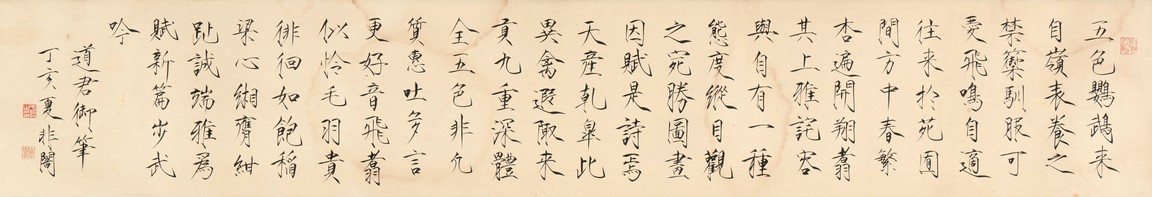 五色鸚鵡来
自嶺表養之
禁籞馴服可
愛飛鳴自適
往来於苑囿
間方中春繁
杏遍開翔翥
其上雅詫容
與自有一種
態度縱目觀
之宛勝圖畫
因賦是詩焉
天產乾皋此
異禽遐陬来
貢九重深體
全五色非凡
質惠吐多言
更好音飛翥
似怜毛羽貴
徘徊如飽稻
梁心緗膺紺
趾誠端雅爲
賦新篇步武
吟
道君御筆
丁亥夏非閣